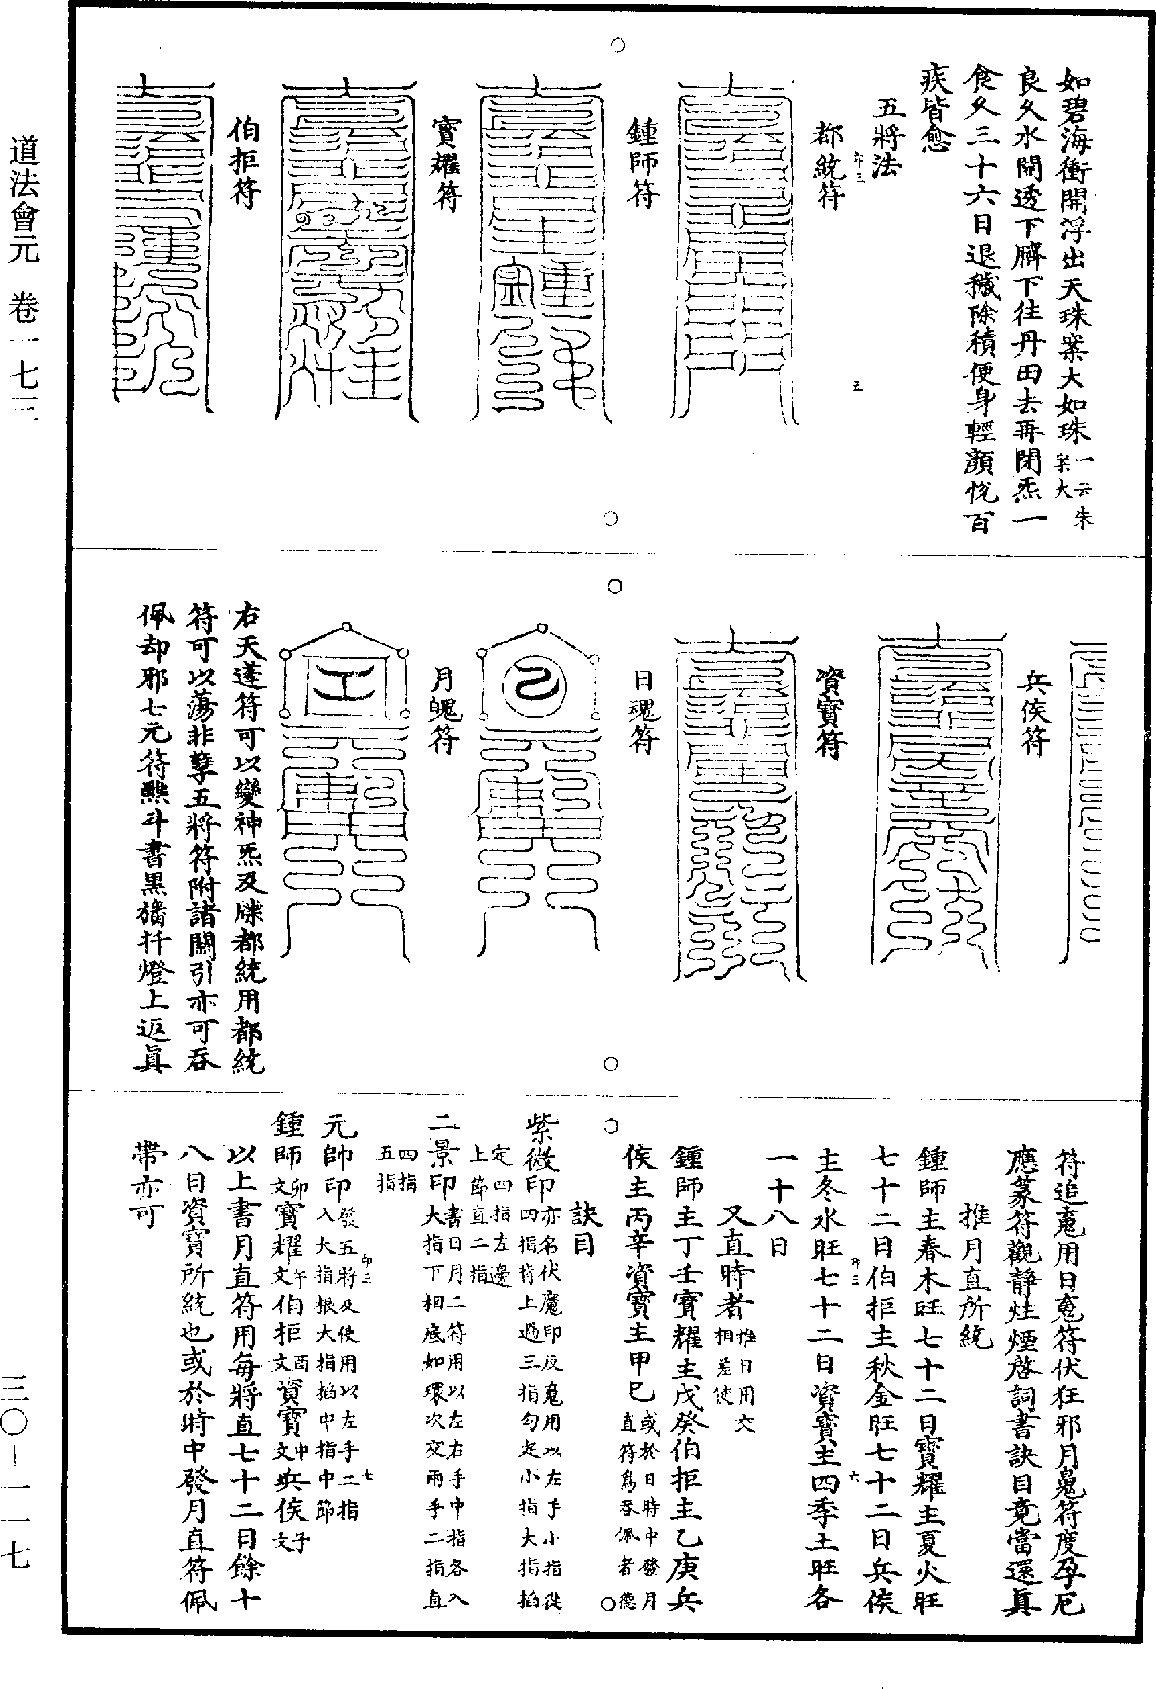 如碧海衝開浮出天珠寀大如珠一云朱寀大
良久水開透下臍下往丹田去再閉炁一
食久三十六日退穢除積便身輕顏悅百
疾皆愈
五將法
都統符
鍾師符
寶耀符
伯拒符
兵侯符
資寶符
日魂符
月魄符
右天蓬符可以變神炁及牒都統用都統
符可以蕩非孽五將符附諸關引亦可吞
佩却邪七元符㸃斗書黑旛扦燈上返眞
符追䰟用日䰟符伏狂邪月魄符度孕厄
應篆符觀靜炷煙啓詞書訣目竟當還眞
推月直所統
鍾師主春木旺七十二日寶耀主夏火旺
七十二日伯拒主秋金旺七十二日兵侯
主冬水旺七十二日資寶主四季土旺各
一十八日
又直時者推日用文相差使
鍾師主丁壬寶耀主戊癸伯拒主乙庚兵
侯主丙辛資寶主甲巳或於日時中發月直符爲吞佩者德
訣目
紫微印亦名伏魔印反䰟用以左手小指從四指背上過三指勾定小指大指掐定四指左邊上節直二指
二景印書日月二符用以左右手中指各入大指下相底如環次交兩手二指直四指五指
元帥印發五將及使用以左手二指入大指根大指掐中指中節
鍾師卯文寶耀午文伯拒酉文資寶中文兵侯子文
以上書月直符用每將直七十二日餘十
八日資寶所統也或於時中發月直符佩
帶亦可
道法會元 卷一七三
三〇-一一七